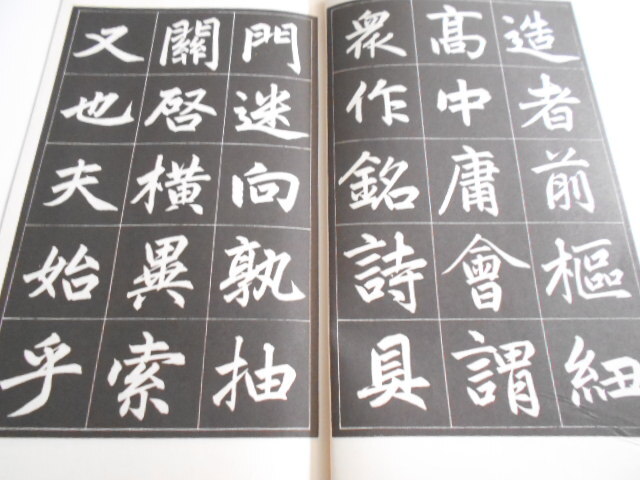 造者前樞紐
髙中庸會謂
衆作銘詩具
門迷向孰抽
關啓橫異索
又也夫始乎